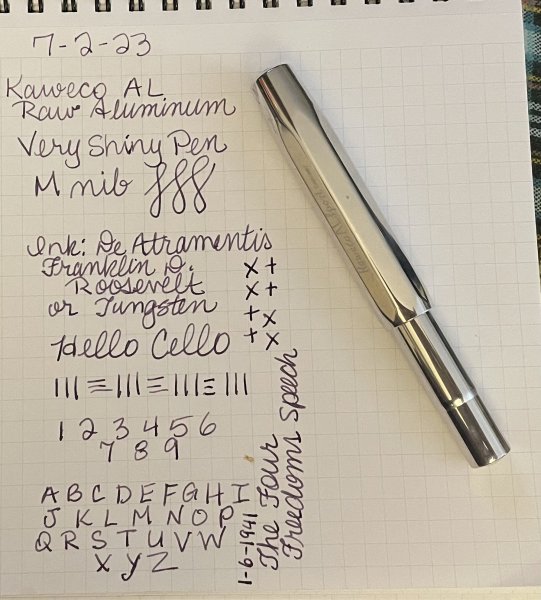 7-2-23
Kaweco AL
Raw Aluminum
Very Shiny Pen
M nib fff
Ink: De Atramentis
Franklin D.
Roosevelt
or Tungsten
x +
x +
+ x
+ x
Hello Cello
||| ≡ ||| ≡ ||| ≡ |||
1 2 3 4 5 6
7 8 9
A B C D E F G H I
J K L M N O P
Q R S T U V W
X Y Z
1-6-1941
The Four
Freedoms Speech
Kaweco AL Sport